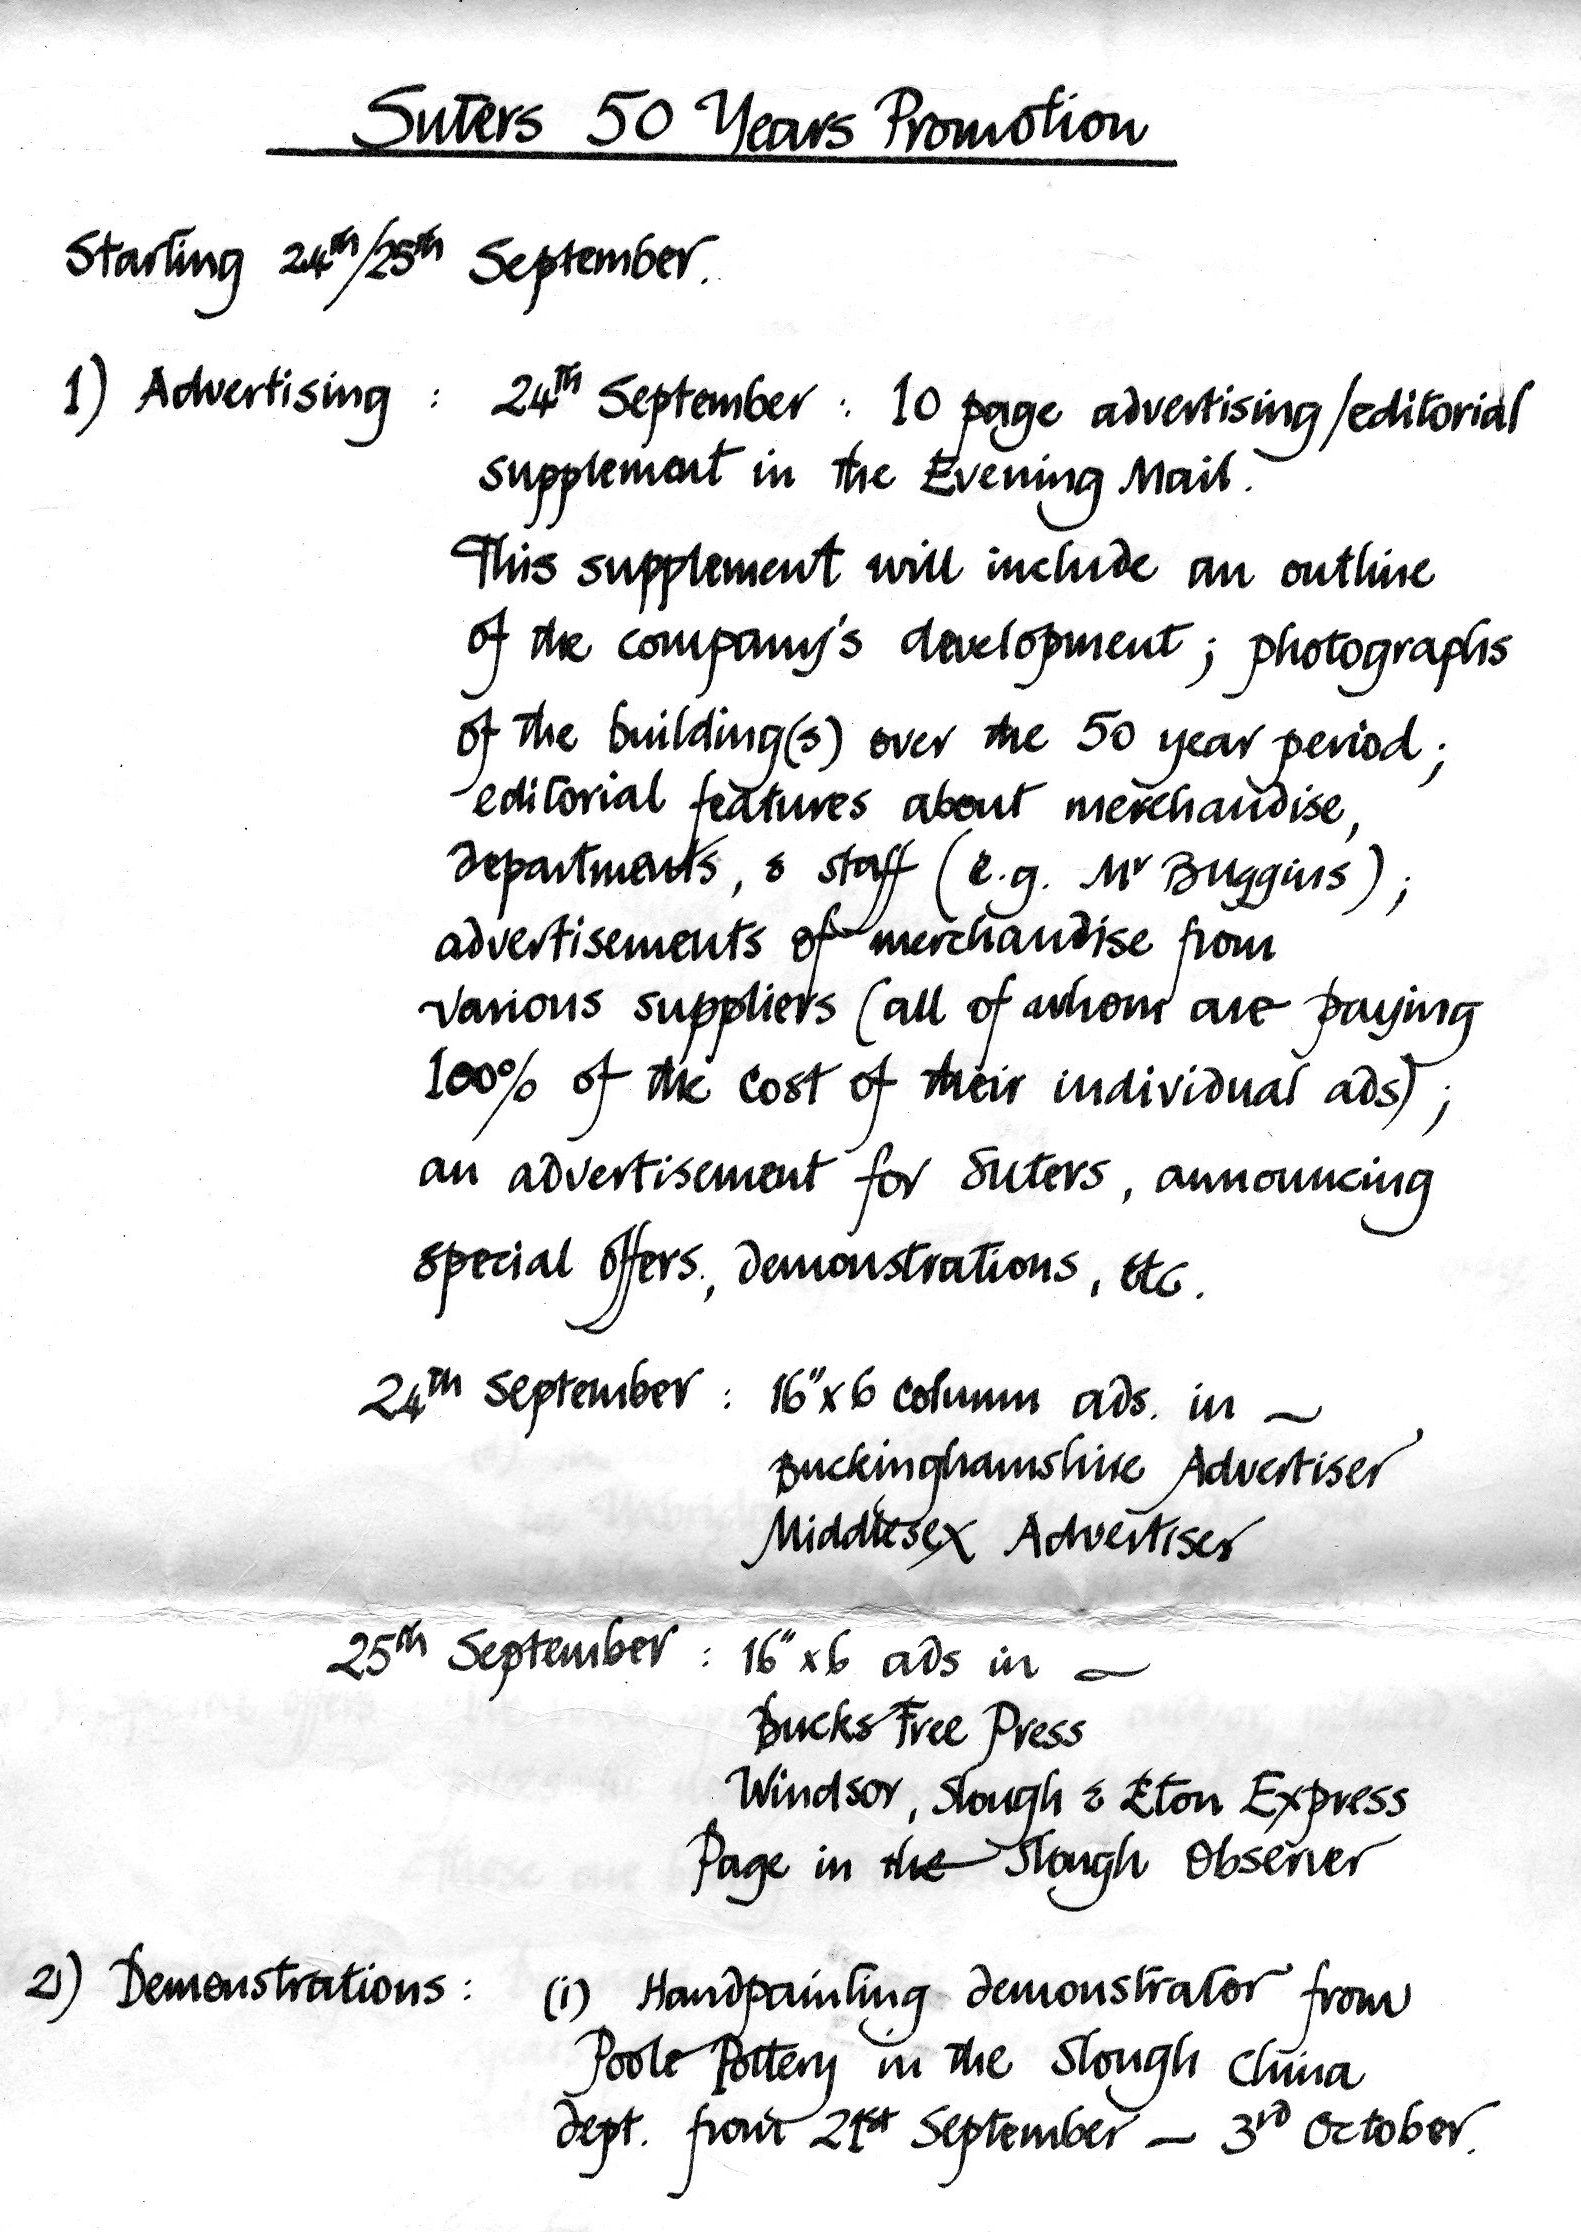 Suters 50 Years Promotion
Starting 24th/25th September.
1) Advertising : 24th September : 10 page advertising/editorial
supplement in the Evening Mail.
This supplement will include an outline
of the company's development ; photographs
of the building(s) over the 50 year period ;
editorial features about merchandise,
departments, & staff (e.g. Mr Buggins) ;
advertisements of merchandise from
various suppliers (all of whom are paying
100% of the cost of their individual ads) ;
an advertisement for Suters, announcing
special offers, demonstrations, etc.
24th September : 16"x6 column ads. in ~
Buckinghamshire Advertiser
Middlesex Advertiser
25th September : 16"x6 ads in ~
Bucks Free Press
Windsor, Slough & Eton Express
Page in the Slough Observer
2) Demonstrations : (i) Handpainting demonstrator from
Poole Pottery in the Slough China
dept. from 21st September — 3rd October.